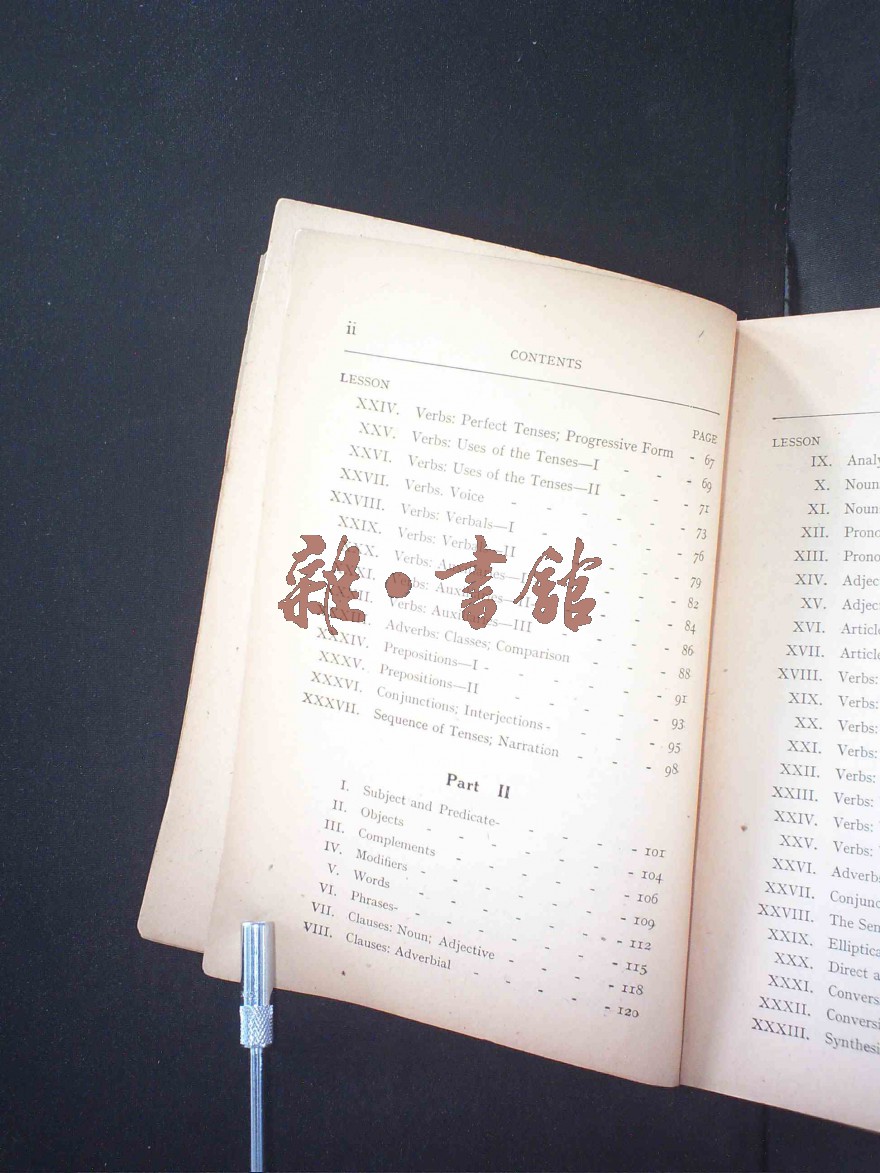 ii
CONTENTS
LESSON PAGE
XXIV. Verbs: Perfect Tenses; Progressive Form - 67
XXV. Verbs: Uses of the Tenses—I - - - 69
XXVI. Verbs: Uses of the Tenses—II - - - 71
XXVII. Verbs. Voice - - - - - 73
XXVIII. Verbs: Verbals—I - - - - 76
XXIX. Verbs: Verbals—II - - - - 79
XXX. Verbs: Auxiliaries—I - - - 82
XXXI. Verbs: Auxiliaries—II - - - 84
XXXII. Verbs: Auxiliaries—III - - - 86
XXXIII. Adverbs: Classes; Comparison - - - 88
XXXIV. Prepositions—I - - - - - 91
XXXV. Prepositions—II - - - - 93
XXXVI. Conjunctions; Interjections - - - - 95
XXXVII. Sequence of Tenses; Narration - - - 98
雜·書館
Part II
I. Subject and Predicate- - - - 101
II. Objects - - - - - 104
III. Complements - - - - - 106
IV. Modifiers - - - - - 109
V. Words - - - - - 112
VI. Phrases- - - - - 115
VII. Clauses: Noun; Adjective - - - - 118
VIII. Clauses: Adverbial - - - - 120
LESSON
IX.
X.
XI.
XII.
XIII.
XIV.
XV.
XVI.
XVII.
XVIII. Verbs:
XIX. Verbs:
XX. Verbs:
XXI. Verbs:
XXII. Verbs:
XXIII. Verbs:
XXIV. Verbs:
XXV. Verbs:
XXVI.
XXVII.
XXVIII. The
XXIX.
XXX. Direct
XXXI.
XXXII.
XXXIII.